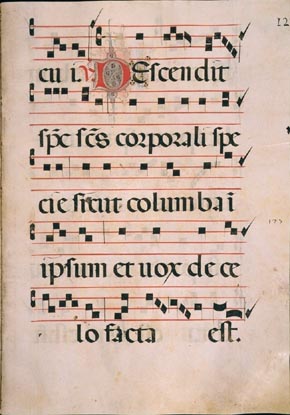 cu i. Descendit
spc scs corporali spe
cie sicut columba i
ipsum et vox de ce
lo facta est.